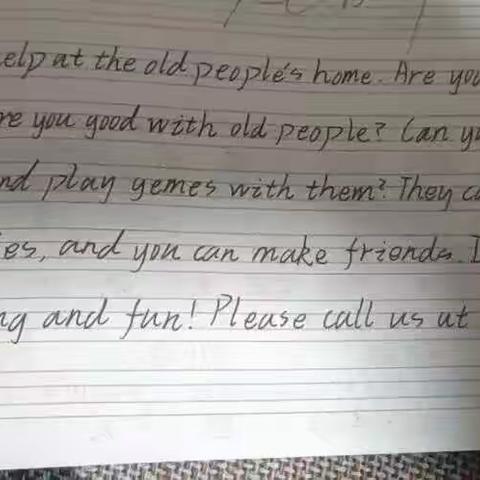 elp at the old people's home. Are you
re you good with old people? Can y
nd play gemes with them? They c
ies, and you can make friends. I
ng and fun! Please call us at